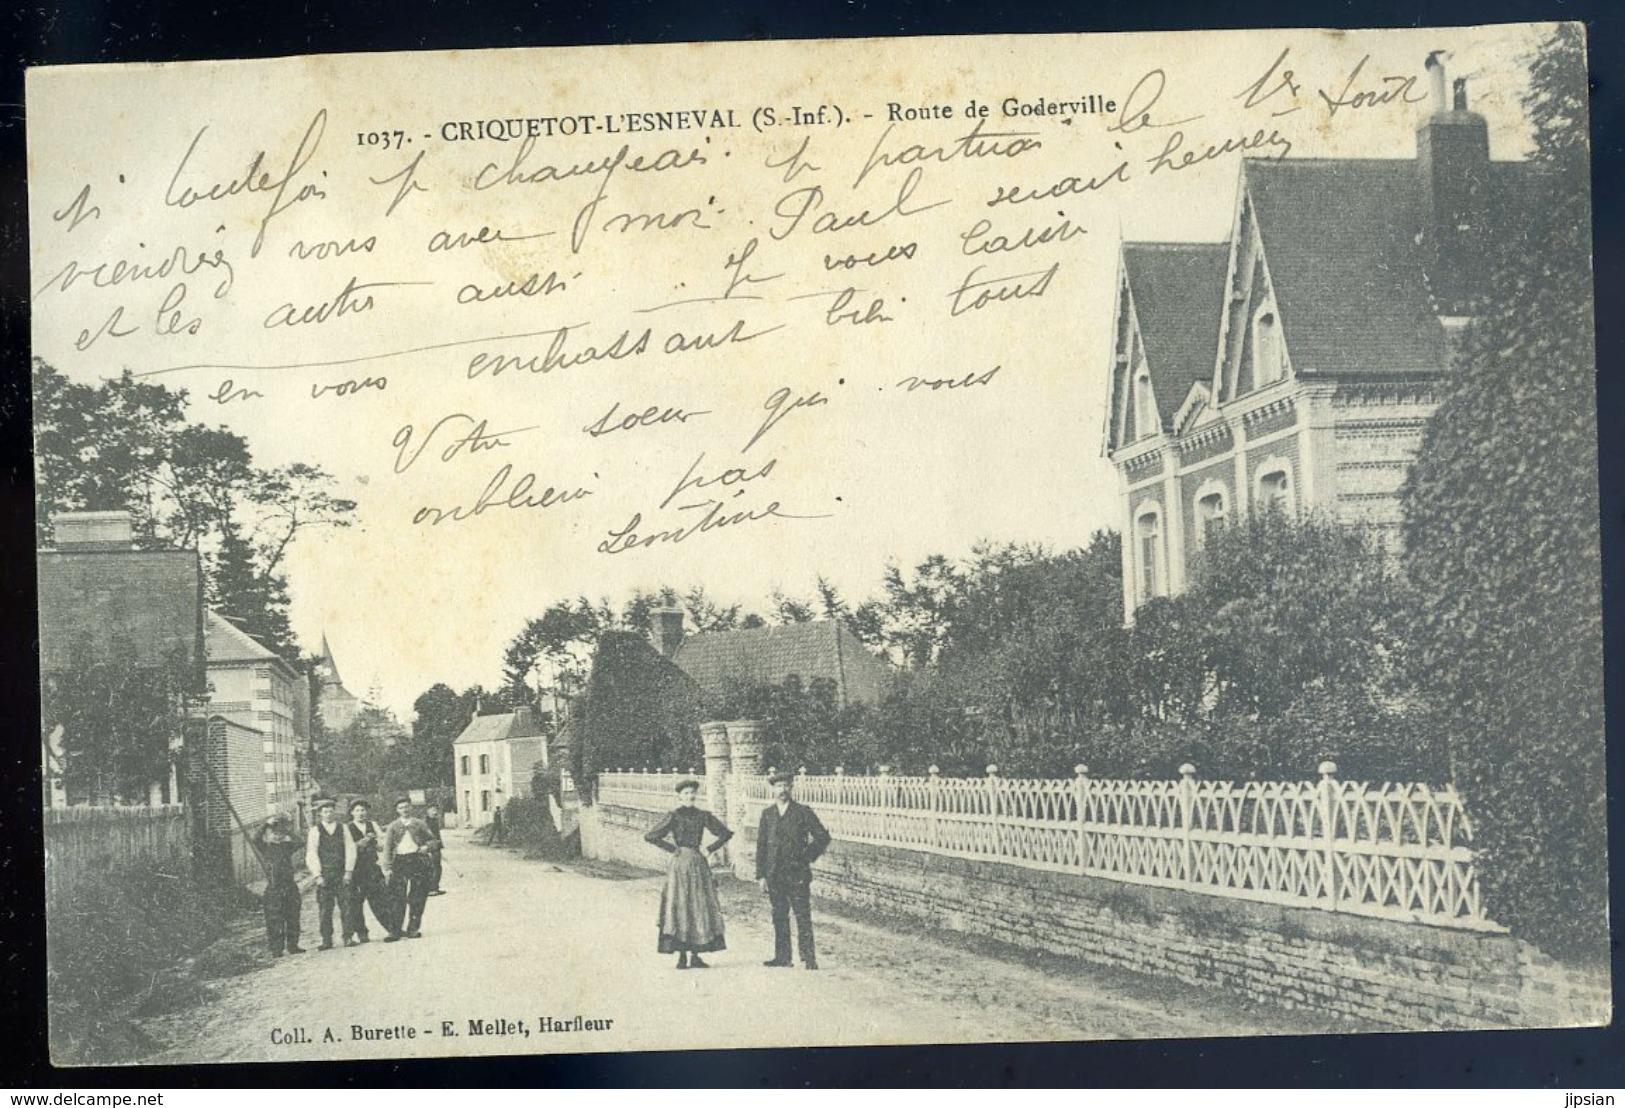 1037. - CRIQUETOT-L'ESNEVAL (S.-Inf.). - Route de Goderville
si toutefois je changeais. je partirai le 1er Août
viendrez vous avec moi. Paul serait heureux
et les autres aussi. je vous laisse
en vous embrassant bien tous
Votre soeur qui vous
oubliera pas
Leontine.
Coll. A. Burette - E. Mellet, Harfleur
www.delcampe.net
jipsian